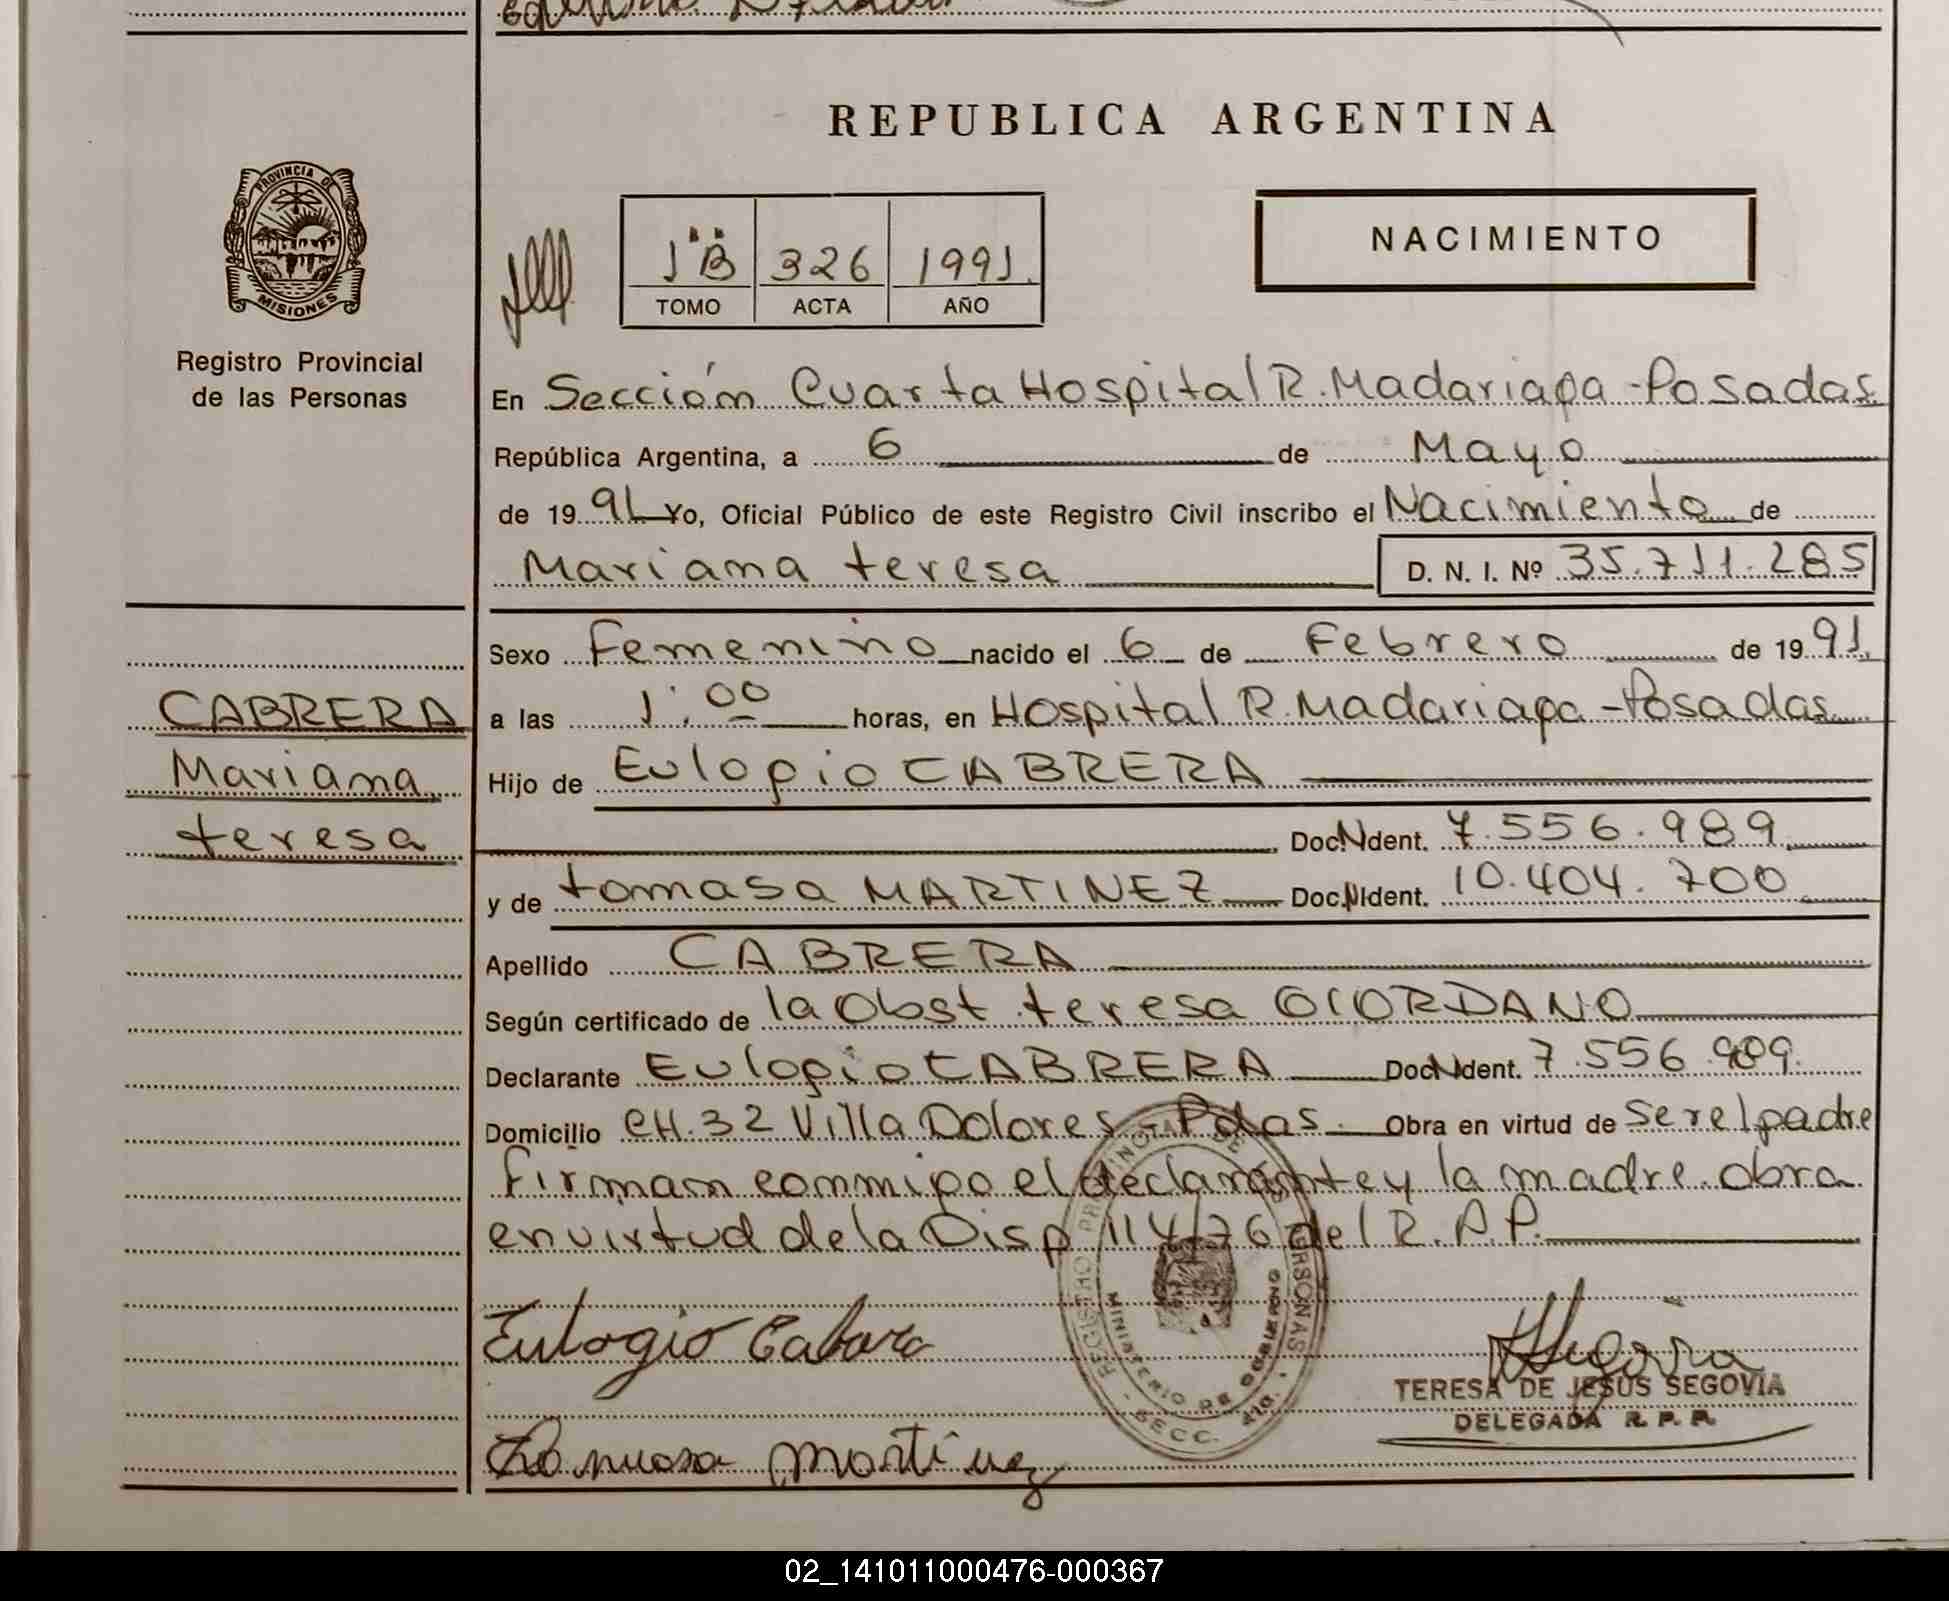 REPUBLICA ARGENTINA
PROVINCIA DE
MISIONES
Registro Provincial
de las Personas
1"B" 326 1991.
TOMO ACTA AÑO
NACIMIENTO
En Sección Cuarta Hospital R. Madariaga - Posadas
República Argentina, a 6 de Mayo
de 1991 Yo, Oficial Público de este Registro Civil inscribo el Nacimiento de
Mariana teresa D. N. I. Nº 35.711.285
Sexo Femenino nacido el 6 de Febrero de 1991.
CABRERA
Mariana
teresa
a las 1:00 horas, en Hospital R. Madariaga - Posadas
Hijo de Eulogio CABRERA
Doc.N Ident. 7.556.989
y de tomasa MARTINEZ Doc.N Ident. 10.404.700
Apellido CABRERA
Según certificado de la Obst. teresa GIORDANO
Declarante Eulogio CABRERA Doc.N Ident. 7.556.989.
Domicilio CH.32 Villa Dolores - Pdas. Obra en virtud de Ser el padre
Firman conmigo el declarante y la madre. obra
en virtud de la Disp 114/76 del R.P.P.
Eulogio Cabrera
REGISTRO PROVINCIAL DE LAS PERSONAS
MINISTERIO DE GOBIERNO
SECC. 4ta.
Segovia
TERESA DE JESUS SEGOVIA
DELEGADA R. P. P.
Martinez
02_141011000476-000367